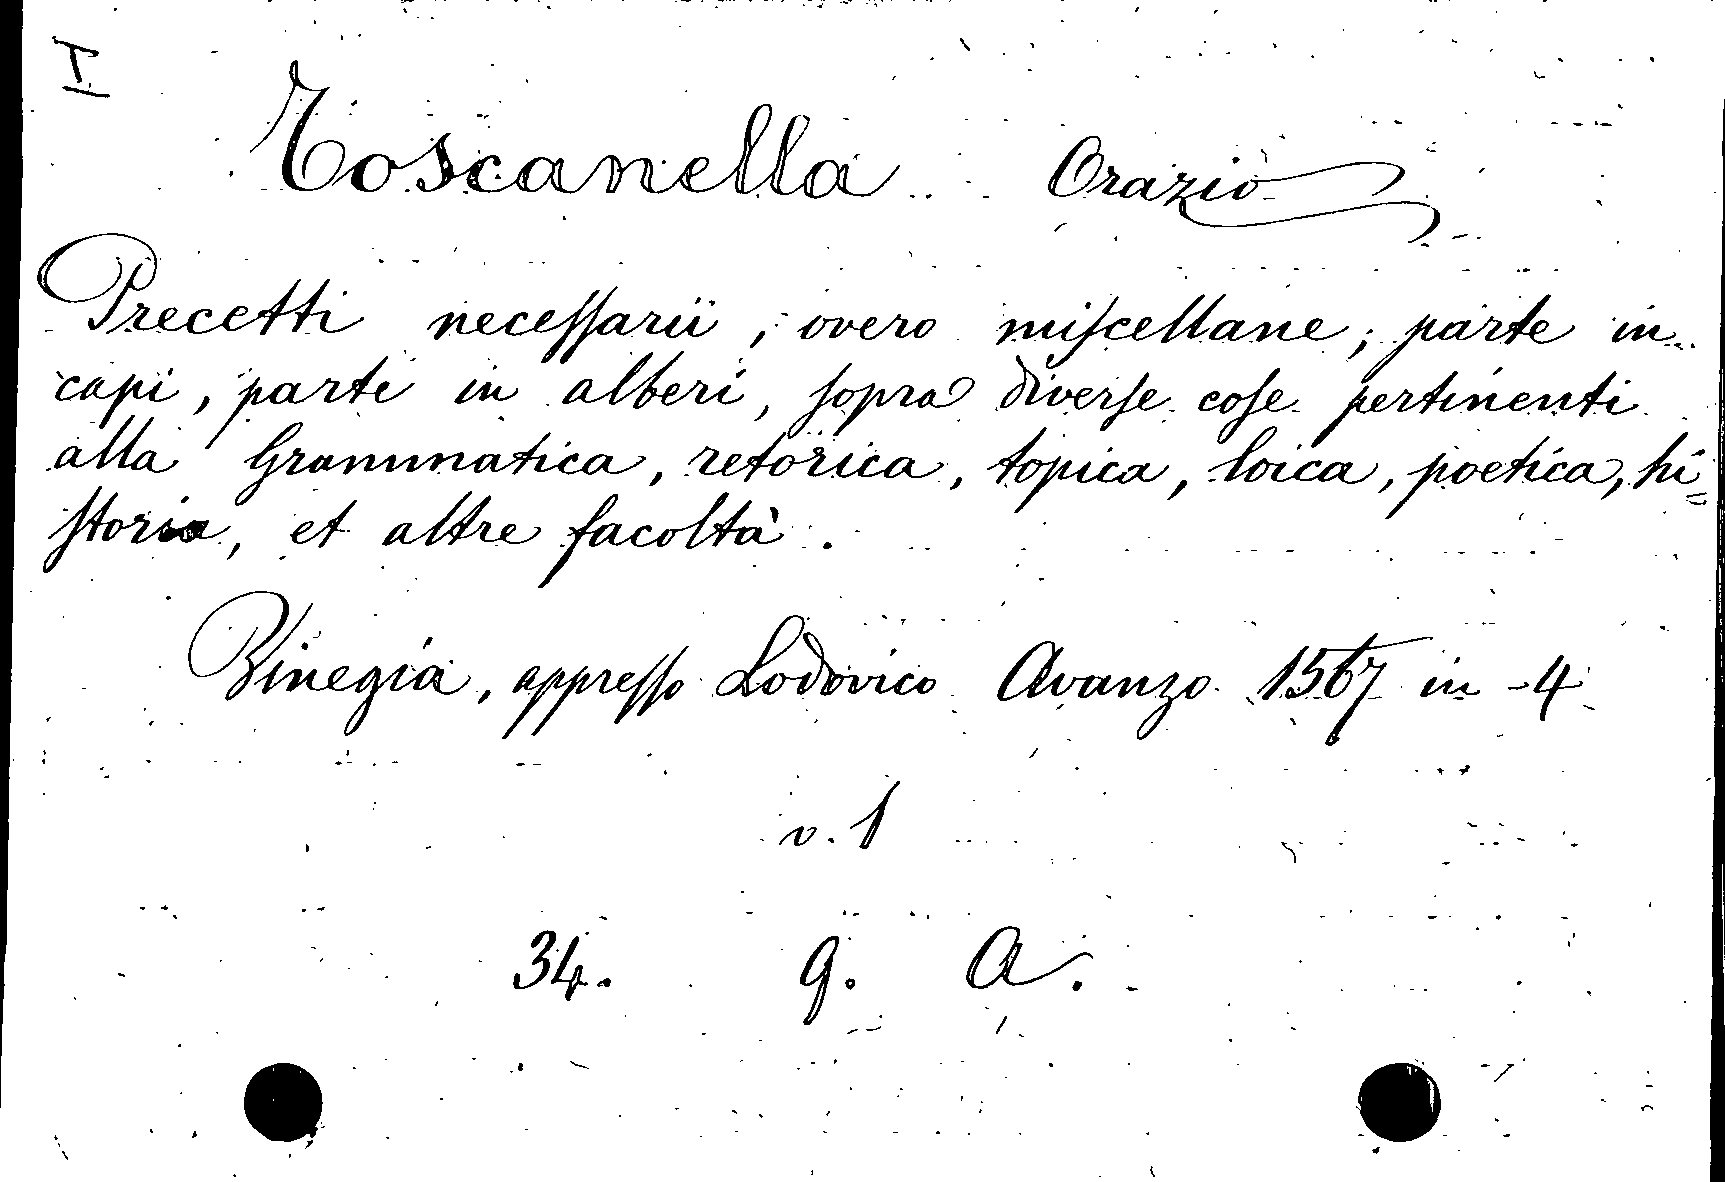 I
Toscanella Orazio
Precetti necessarii, overo miscellane; parte in
capi, parte in alberi, sopra diverse cose pertinenti
alla Grammatica, retorica, topica, loica, poetica, hi=
storia, et altre facoltà.
Vinegia, appresso Lodovico Avanzo 1567 in -4
v. 1
34. g. A.